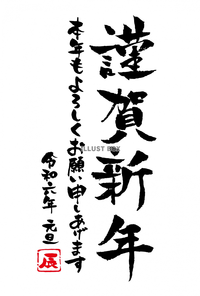 謹賀新年
本年もよろしくお願い申しあげます
令和六年 元旦
辰
ILLUST BOX